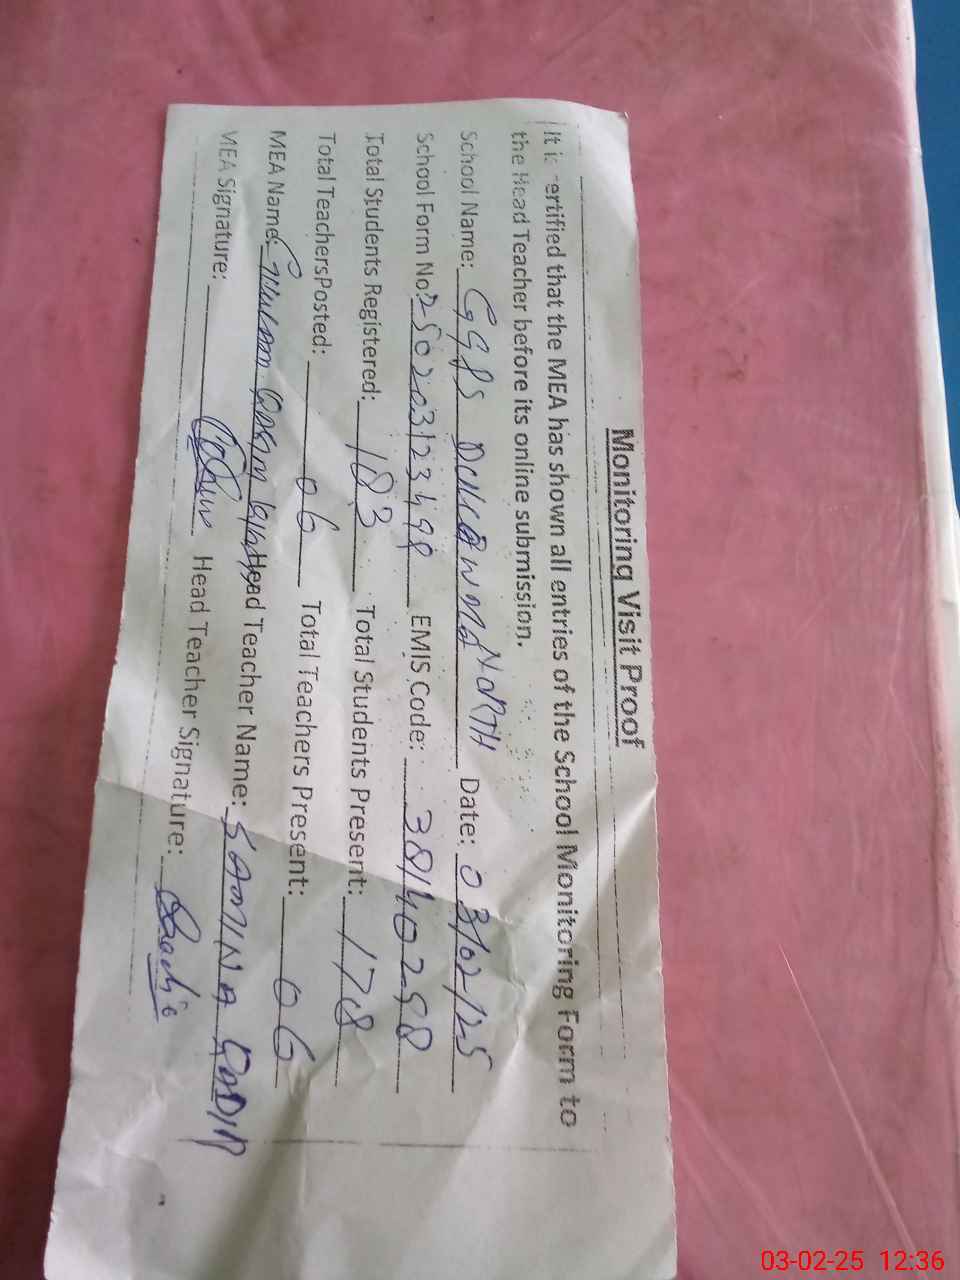 Monitoring Visit Proof
It is certified that the MEA has shown all entries of the School Monitoring Form to
the Head Teacher before its online submission.
School Name: GGPS NORTH Date: 03/02/25
School Form No: EMIS Code: 38140298
Total Students Registered: 183 Total Students Present: 178
Total Teachers Posted: 06 Total Teachers Present: 06
MEA Name: Ghulam Head Teacher Name: SAMINA
MEA Signature: Head Teacher Signature:
03-02-25 12:36